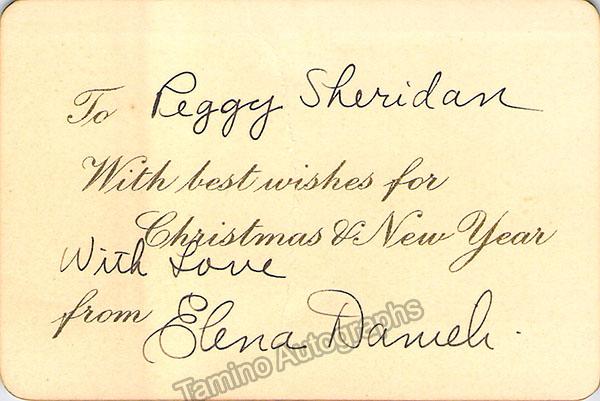 To Peggy Sheridan
With best wishes for
Christmas & New Year
With Love
from Elena Danieli.
Tamino Autographs